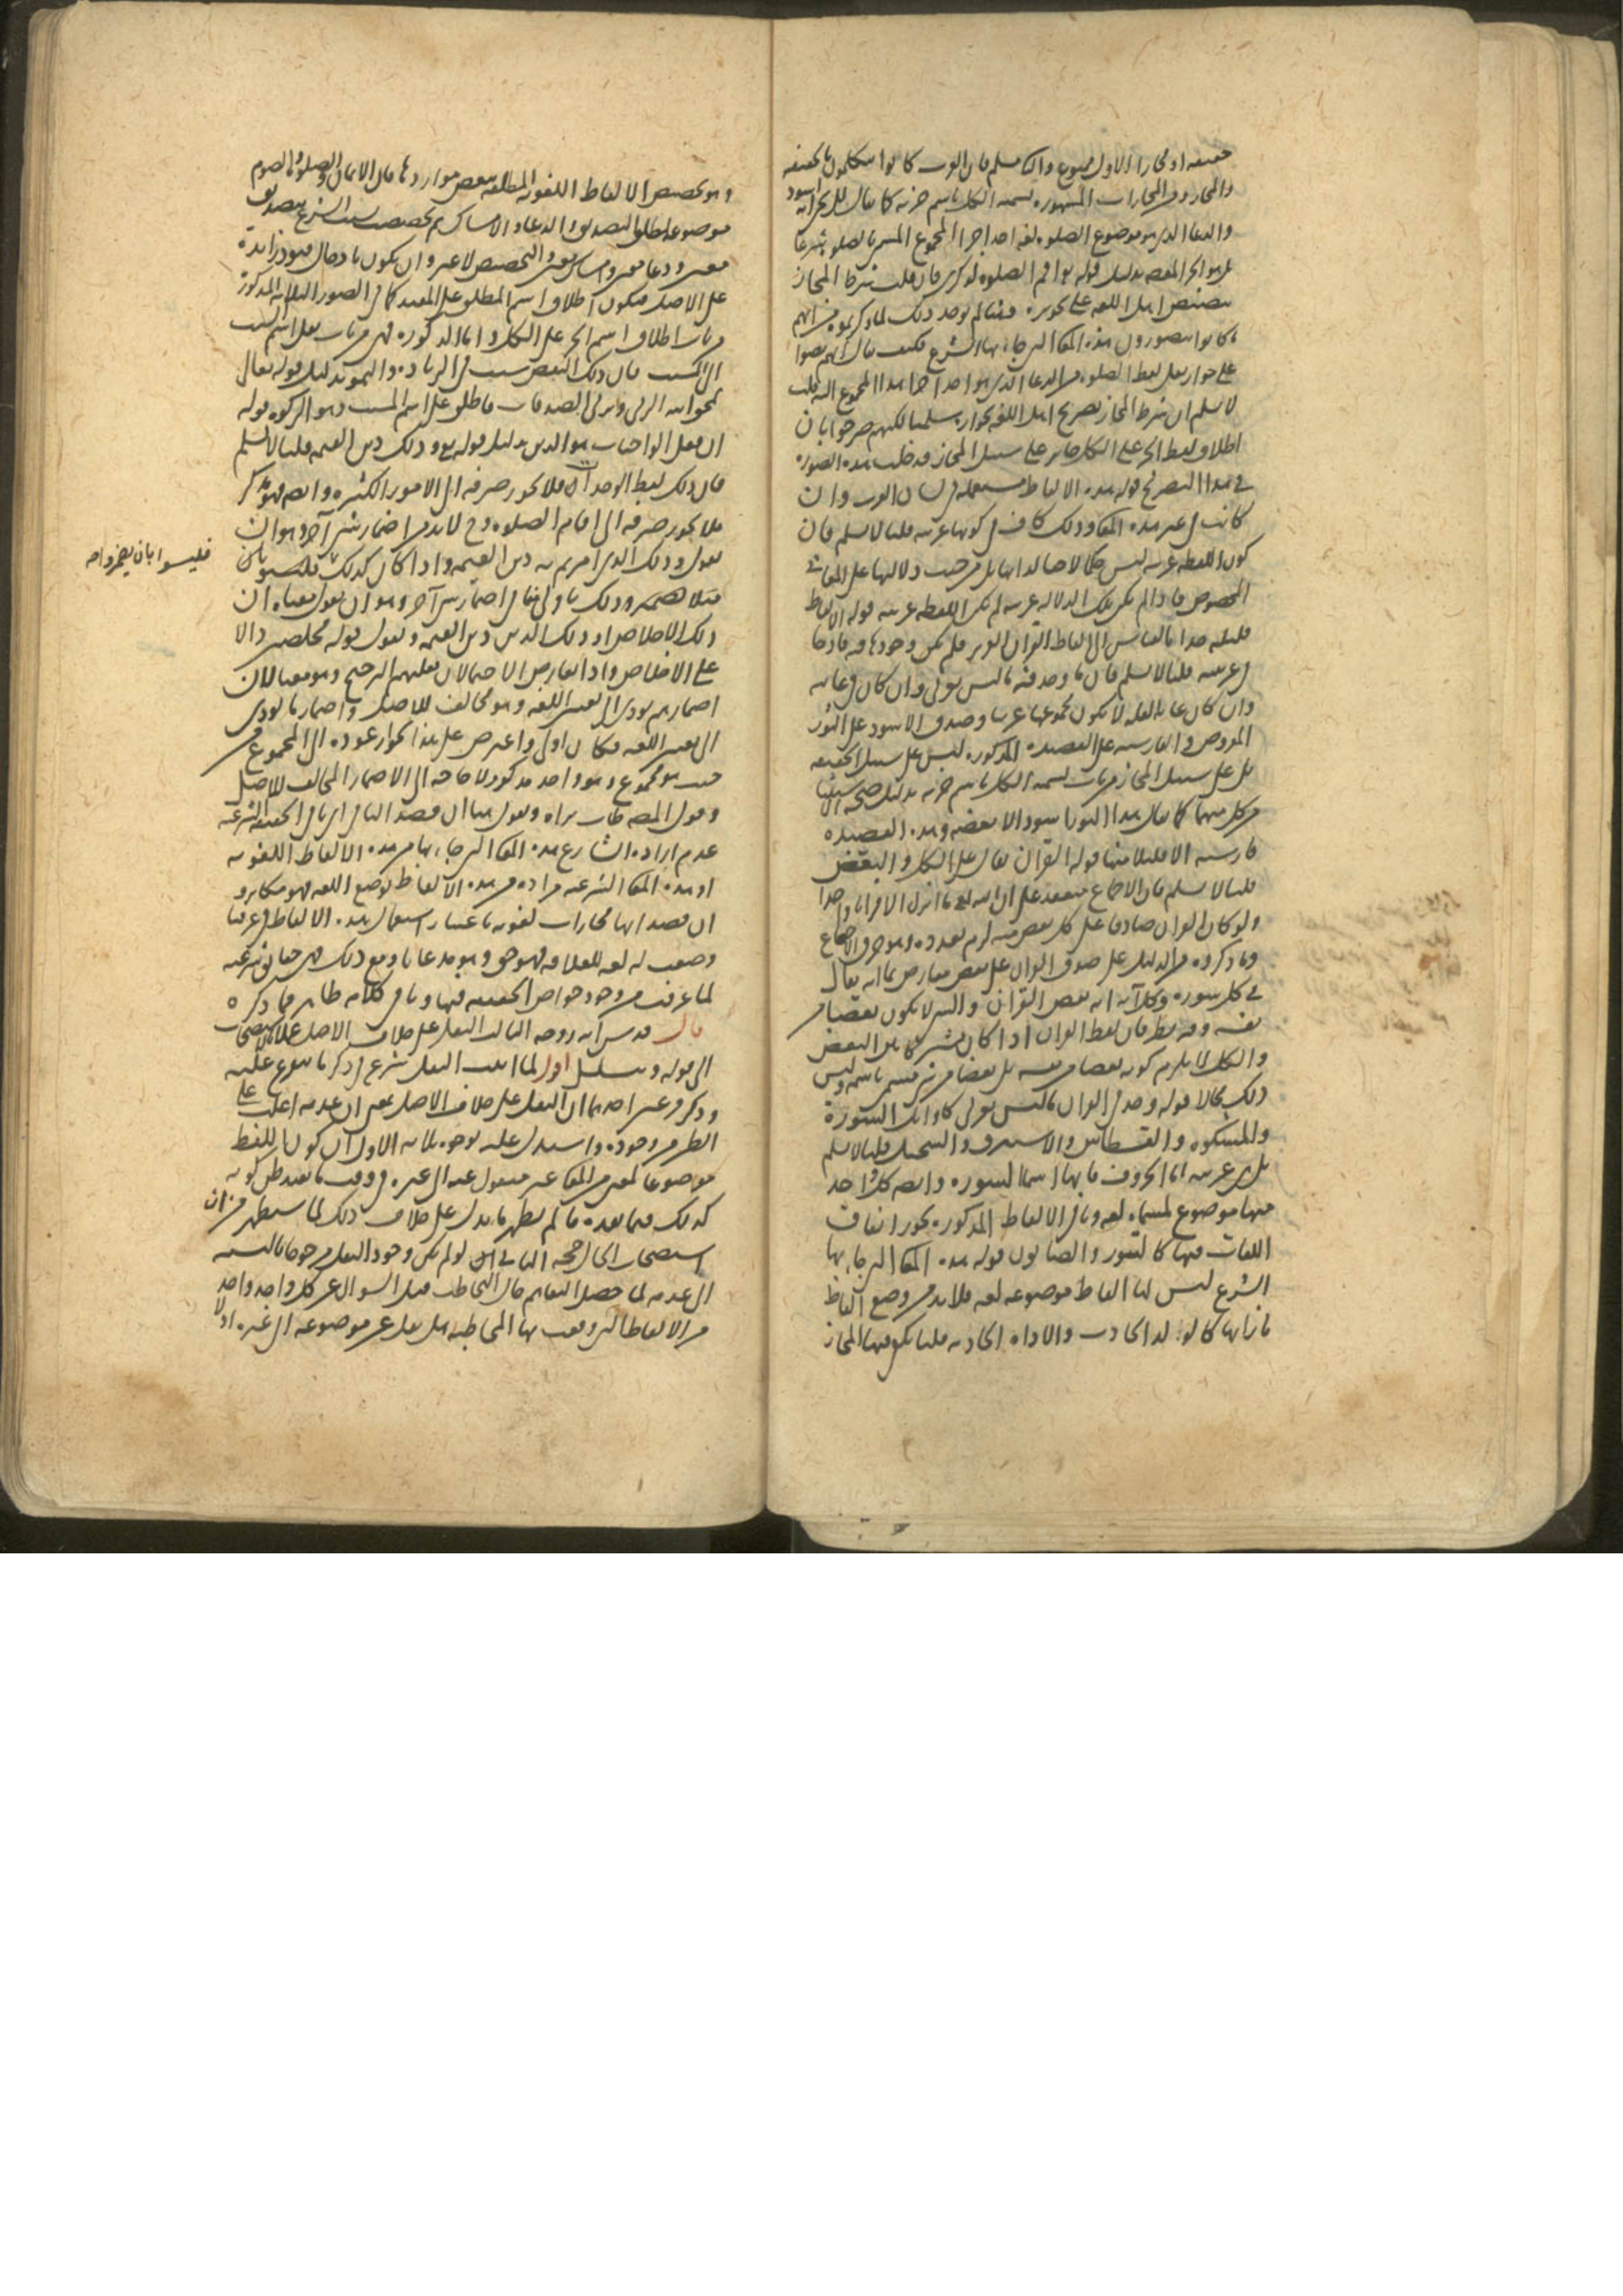 حقيقة او مجازا الاول ممنوع والثانى مسلم فان العرب كانوا يتكلمون بالحقيقة
والمجاز ومن المجازات المشهورة تسمية الكل باسم جزئه كما يقال للزنجى انه اسود
والدعا الذى هو موضوع الصلوة لغة احد اجزا المجموع المسمى بالصلوة شرعا
بل هو الجزء المقصود بدليل قوله تع اقم الصلوة لذكرى فان قلت شرط المجاز
تنصيص اهل اللغة على تجويزه وهنا لم يوجد ذلك لما ذكرتموه من انهم
ما كانوا يتصورون هذه المعانى التى جا بها الشرع فكيف يقال انهم نصوا
على جواز نقل لفظ الصلوة من الدعا الذى هو احد اجزا هذا المجموع اليه قلت
لا نسلم ان شرط المجاز تصريح اهل اللغة بجوازه سلمنا لكنهم صرحوا بان
اطلاق لفظ الجزء على الكل جائز على سبيل المجاز فدخلت هذه الصورة
فى هذا التصريح قوله هذه الالفاظ مستعملة فى لسان العرب وان
كانت فى غير هذه المعانى وذلك كاف فى كونها عربية قلنا لا نسلم فان
كون اللفظة عربية ليس حكما لاحقا لذاتها بل من حيث دلالتها على المعانى
المخصوص فما دام لم يكن تلك الدلالة عربية لم تكن اللفظة عربية قوله الالفاظ
قليلة جدا بالقياس الى الفاظ القران العزيز فلم يكن وجودها فيه قادحا
فى عربيته قلنا لا نسلم فان ما وجد فيه ما ليس بعربى وان كان فى غاية
وان كان غاية القلة لا يكون مجموعها عربيا وصدق الاسود على الثور
المفروض والفارسية على القصيدة المذكورة ليس على سبيل الحقيقة
بل على سبيل المجاز من باب تسمية الكل باسم جزئه بدليل صحة الاستثنا
من كل منهما كما يقال هذا الثور اسود الا بعضه وهذه القصيدة
فارسية الا قليلا منها قوله القران يقال على الكل والبعض
قلنا لا نسلم فان الاجماع منعقد على ان الله تع ما انزل الا قرانا واحدا
ولو كان القران صادقا على كل بعض منه لزم تعدده وهو خرق الاجماع
وما ذكروه من الدليل على صدق القران على بعض معارض بما انه يقال
فى كل سورة وكل آية انه بعض القران والشى لا يكون بعضا من
نفسه وفيه نظر فان لفظ القران اذا كان مشتركا بين البعض
والكل لا يلزم كونه بعضا من نفسه بل بعضا من شى مسمى باسمه وليس
ذلك محالا قوله وجد فى القران ما ليس بعربى كاوائل السورة
والمشكوة والقسطاس والاستبرق والسجيل قلنا لا نسلم
بل هى عربية اما الحروف فانها اسما للسورة وايضا كل واحد
منها موضوع لمسماه لغة وباقى الالفاظ المذكورة يجوز اتفاق
اللغات فيها كالتنور والصابون قوله هذه المعانى التى جا بها
الشرع ليس لها الفاظ موضوعة لغة فلا بد من وضع الفاظ
بازائها كالولد الحادث والاداة الحادثة قلنا يكفى فيها المجاز
وهو تخصيص الالفاظ اللغوية المطلقة ببعض مواردها فان الايمان والصلوة والصوم
موضوعة لمطلق التصديق والدعا والامساك ثم تخصصت بسبب الشرع بتصديق
معين ودعا معين وامساك معين والتخصيص لا غير وان يكون بادخال قيود زايدة
على الاصل فيكون اطلاق اسم المطلق على المقيد كما فى الصور الثلاثة المذكورة
من باب اطلاق اسم الجزء على الكل واما الزكوة فهى من باب نقل اسم السبب
الى المسبب فان ذلك التنقيص سبب فى الزيادة والنمو بدليل قوله تعالى
يمحق الله الربى ويربى الصدقات فاطلق على اسم المسبب وهو الزكوة قوله
ان فعل الواجبات هو الدين بدليل قوله تع وذلك دين القيمة قلنا لا نسلم
فان ذلك لفظ الوحدان فلا يجوز صرفه الى الامور الكثيرة وايضا فهو مذكر
فلا يجوز صرفه الى اقام الصلوة وح لا بد من اضمار شى آخر وهو ان
يقول وذلك الذى امرتم به دين القيمة واذا كان كذلك فليس بان
فليسوا بان يضمروا هذا
مثلا نضمر وذلك باولى منا فى اضمار شى آخر وهو ان يقول معناه ان
ذلك الاخلاص او ذلك الدين دين القيمة ونقول قوله مخلصين دال
على الاخلاص واذا تعارض الاحتمالان فعليهم الترجيح وهو معنا لان
اضمارهم يودى الى تغيير اللغة وهو مخالف للاصل واضمارنا يودى
الى تغيير اللغة فكان اولى واعترض على هذا بجواز عوده الى المجموع من
حيث هو مجموع وهو واحد مذكور لا حاجة الى الاضمار المخالف للاصل
وقول المصنف طاب ثراه ونقول هنا ان قصد النافى اى نافى الحقيقة الشرعية
عدم ارادة الشارع هذه المعانى التى جا بها من هذه الالفاظ اللغوية
او هذه المعانى الشرعية مرادة من هذه الالفاظ بوضع اللغة فهو مكابرة
ان قصد انها مجازات لغوية باعتبار استعمال هذه الالفاظ فى غير ما
وضعت له لغة للعلاقة فهو حق وهو مدعانا ومع ذلك فهى حقائق شرعية
لما عرفت من وجود خواص الحقيقة فيها وباقى كلامه ظاهر مما ذكره
قال قدس الله روحه الثالث النقل على خلاف الاصل عملا بالاستصحاب
الى قوله وتسلسل اقول لما اثبت النقل شرع فى ذكر ما يتفرع عليه
وذكر فرعين احدهما ان النقل على خلاف الاصل بمعنى ان عدمه اغلب على
الظن من وجوده واستدل عليه بوجوه ثلاثة الاول ان كون اللفظ
موضوعا لمعنى من المعانى غير منقول عنه الى غيره فى وقت ما يفيد ظن كونه
كذلك فيما بعده ما لم يظهر ما يدل على خلاف ذلك لما سيظهر من ان
استصحاب الحال حجة الثانى انه لو لم يكن وجود النقل مرجوحا بالنسبة
الى عدمه لما حصل التفاهم حال التخاطب قبل السؤال عن كل واحد واحد
من الالفاظ التى وقعت بها المخاطبة هل نقل عن موضوعه الى غيره اولا